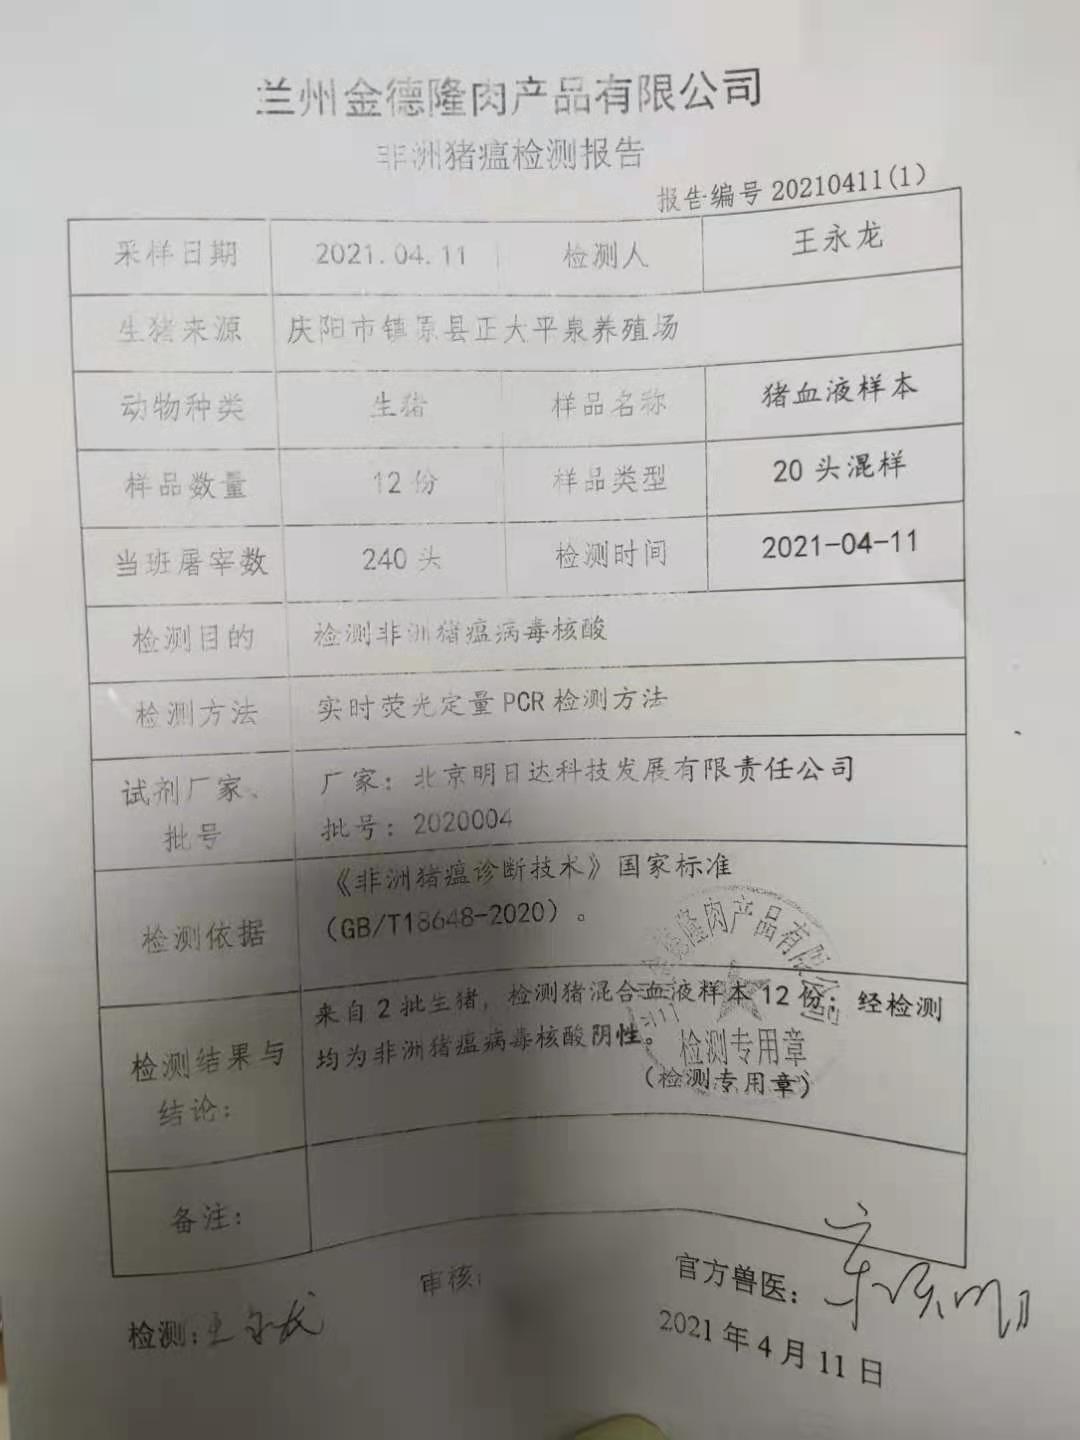 兰州金德隆肉产品有限公司
非洲猪瘟检测报告
报告编号 20210411(1)
采样日期 2021.04.11 检测人 王永龙
生猪来源 庆阳市镇原县正大平泉养殖场
动物种类 生猪 样品名称 猪血液样本
样品数量 12份 样品类型 20头混样
当班屠宰数 240头 检测时间 2021-04-11
检测目的 检测非洲猪瘟病毒核酸
检测方法 实时荧光定量PCR检测方法
试剂厂家、
批号
厂家：北京明日达科技发展有限责任公司
批号：2020004
检测依据
《非洲猪瘟诊断技术》国家标准
（GB/T18648-2020）。
检测结果与
结论：
来自2批生猪，检测猪混合血液样本12份；经检测
均为非洲猪瘟病毒核酸阴性。
德隆肉产品有限公司
检测专用章
（检测专用章）
备注：
审核：
官方兽医：
检测：王永龙
2021年4月11日